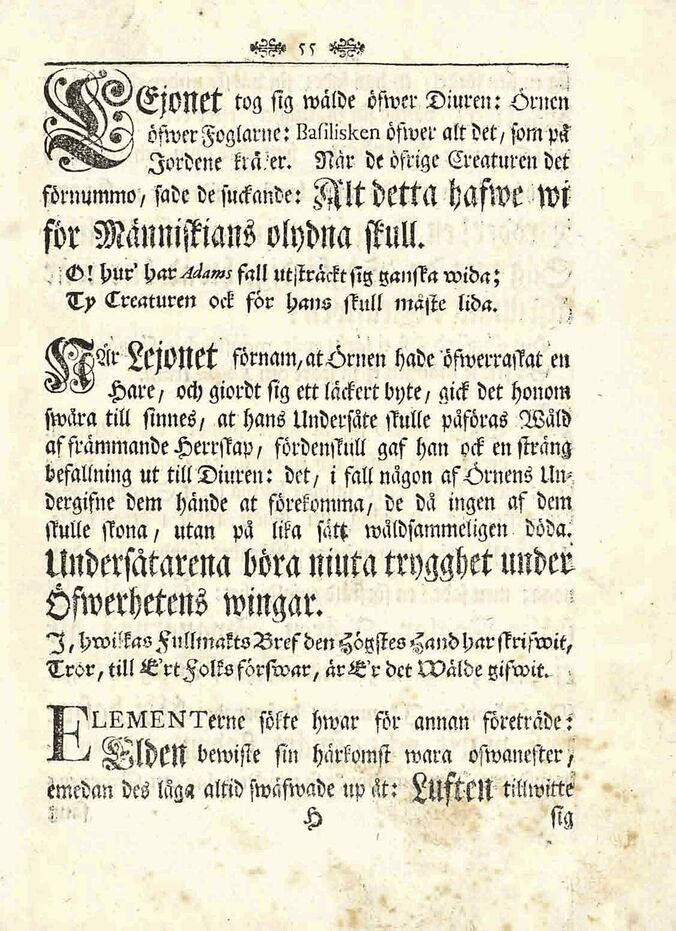 55
LEjonet tog sig wälde öfwer Diuren: Örnen
öfwer Foglarne: Basilisken öfwer alt det, som på
Jordene kräler. När de öfrige Creaturen det
förnummo, sade de suckande: Alt detta hafwe wi
för Människians olydna skull.
O! hur' har Adams fall utsträckt sig ganska wida;
Ty Creaturen ock för hans skull måste lida.
När Lejonet förnam, at Örnen hade öfwerraskat en
Hare, och giordt sig ett läckert byte, gick det honom
swåra till sinnes, at hans Undersåte skulle påföras Wåld
af främmande Herrskap, fördenskull gaf han ock en sträng
befallning ut till Diuren: det, i fall någon af Örnens Un-
dergifne dem hände at förekomma, de då ingen af dem
skulle skona, utan på lika sätt wåldsammeligen döda.
Undersåtarena böra niuta trygghet under
Öfwerhetens wingar.
J, hwilkas Fullmakts Bref den Högstes Hand har skrifwit,
Tror, till E'rt Folks förswar, är E'r det Wälde gifwit.
ELEMENTerne sökte hwar för annan företräde:
Elden bewiste sin härkomst wara ofwanefter,
emedan des låga altid swäfwade up åt: Luften tillwitte
H sig